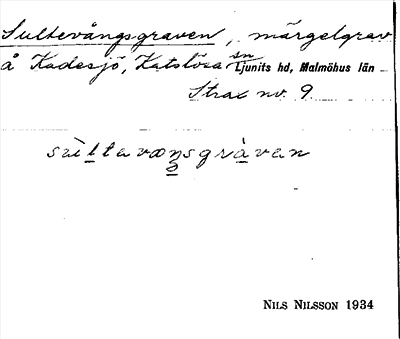 Sultevångsgraven, märgelgrav
å Kadesjö, Katslösa sn Ljunits hd, Malmöhus län
Strax nv. 9.
sùltavæŋsgràvan
NILS NILSSON 1934